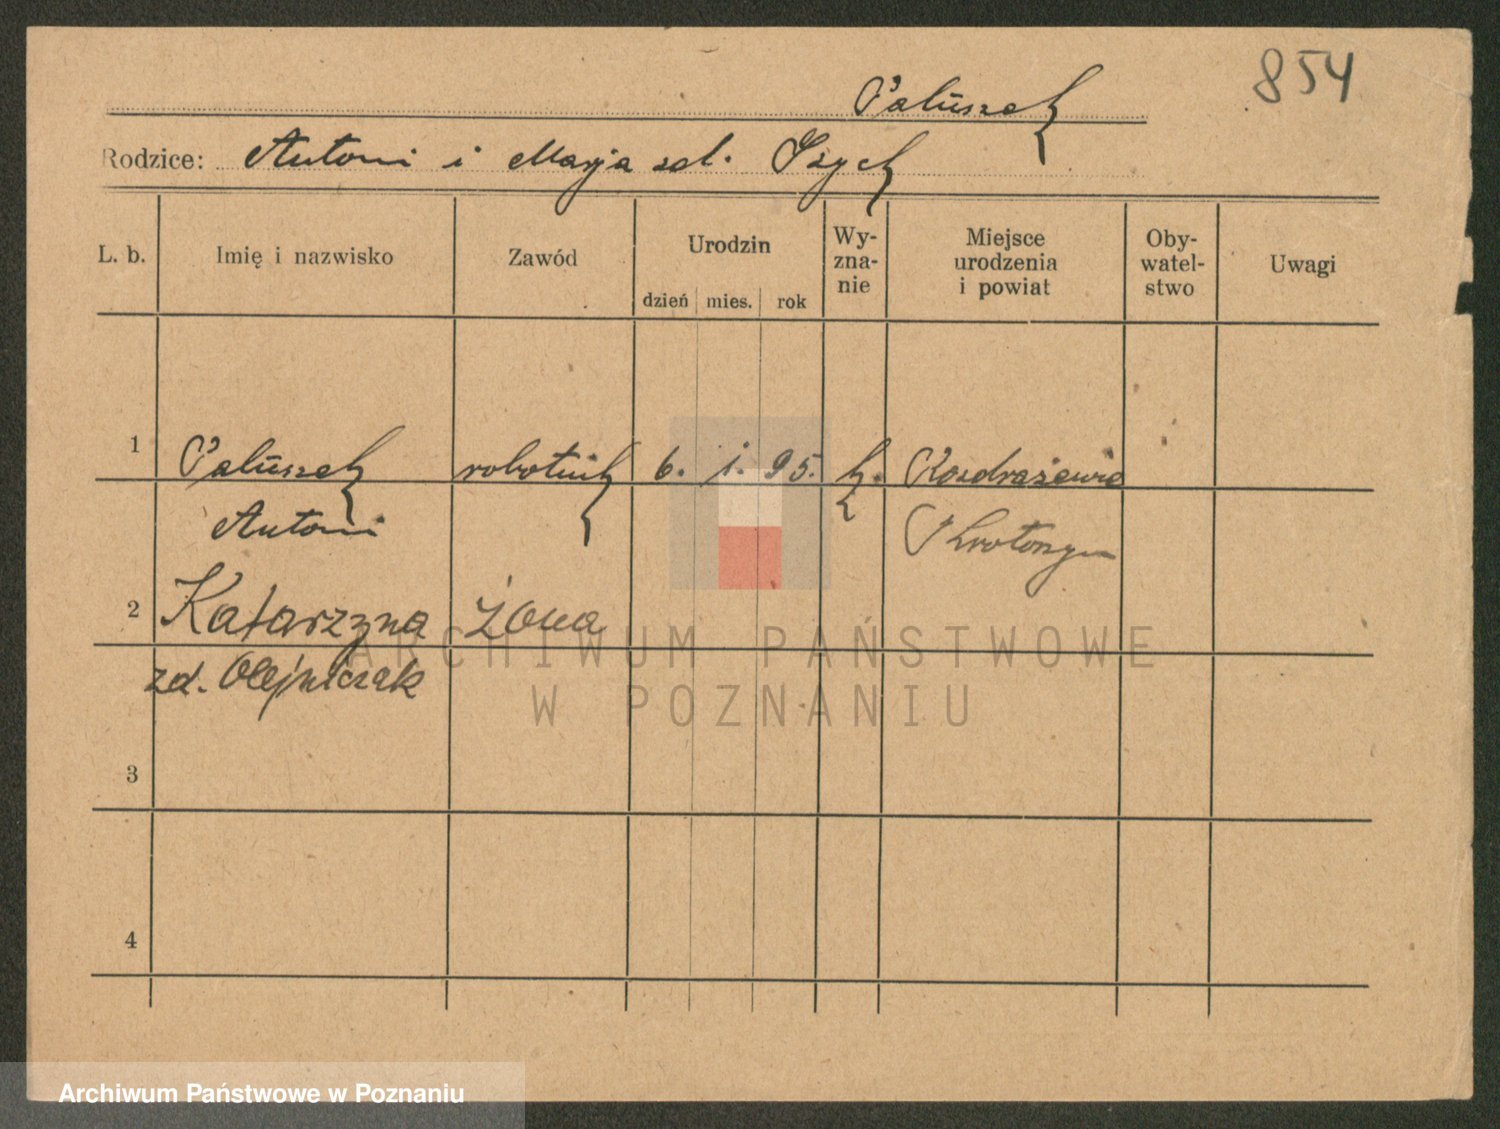 854
Paluszek
Rodzice: Antoni i Marja zd. Szych
L. b. Imię i nazwisko Zawód Urodzin dzień mies. rok Wy-zna-nie Miejsce urodzenia i powiat Oby-watel-stwo Uwagi
1 Paluszek robotnik 6. 1. 95. k. Rozdrażewie
Antoni Krotoszyn
2 Katarzyna żona
zd. Olejniczak
3
4
ARCHIWUM PAŃSTWOWE
W POZNANIU
Archiwum Państwowe w Poznaniu